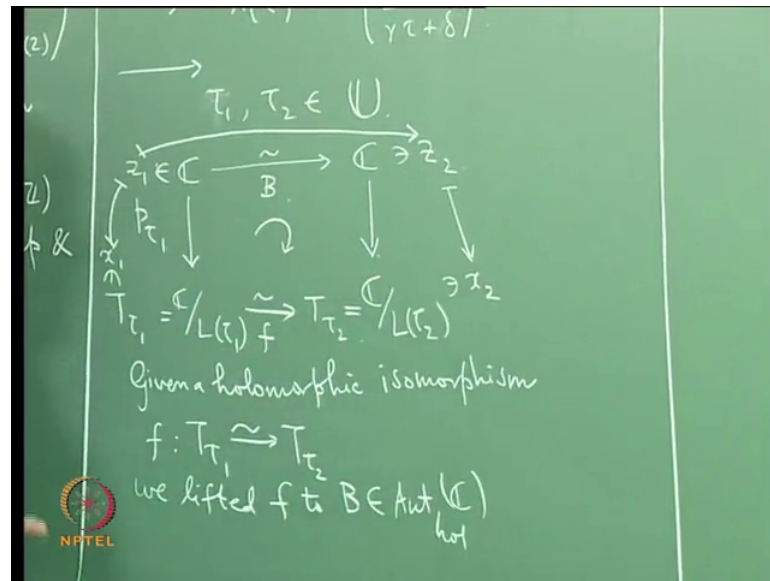 (2)
γτ + δ
τ₁, τ₂ ∈ U.
z₁ ∈ ℂ ~ B ℂ ∋ z₂
p_τ₁
&
x₁
T_τ₁ = ℂ/L(τ₁) ~ f T_τ₂ = ℂ/L(τ₂) ∋ x₂
Given a holomorphic isomorphism
f : T_τ₁ ~→ T_τ₂
we lifted f to B ∈ Aut_hol(ℂ)
NPTEL